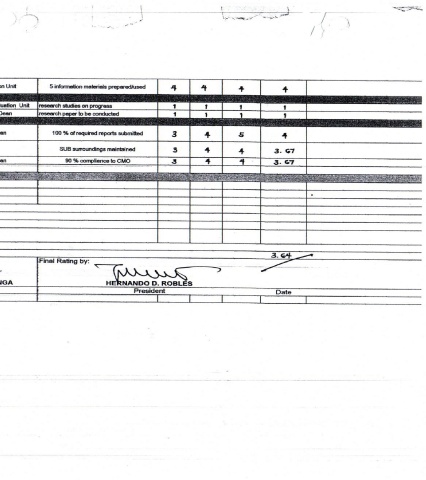 on Unit 5 information materials prepared/used 4 4 4 4
uation Unit research studies on progress 1 1 1 1
Dean research paper to be conducted 1 1 1 1
an 100 % of required reports submitted 3 4 5 4
SUB surroundings maintained 3 4 4 3.67
an 90 % compliance to CMO 3 4 4 3.67
3.64
Final Rating by:
NGA HERNANDO D. ROBLES
President Date